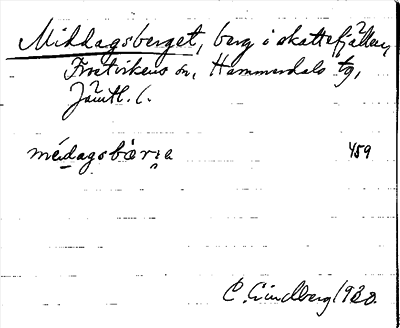 Middagsberget, berg i skattefjällen,
Frostvikens sn, Hammerdals tg,
Jämtl. l.
médagsbærıa 459
C. Lindberg 1920.